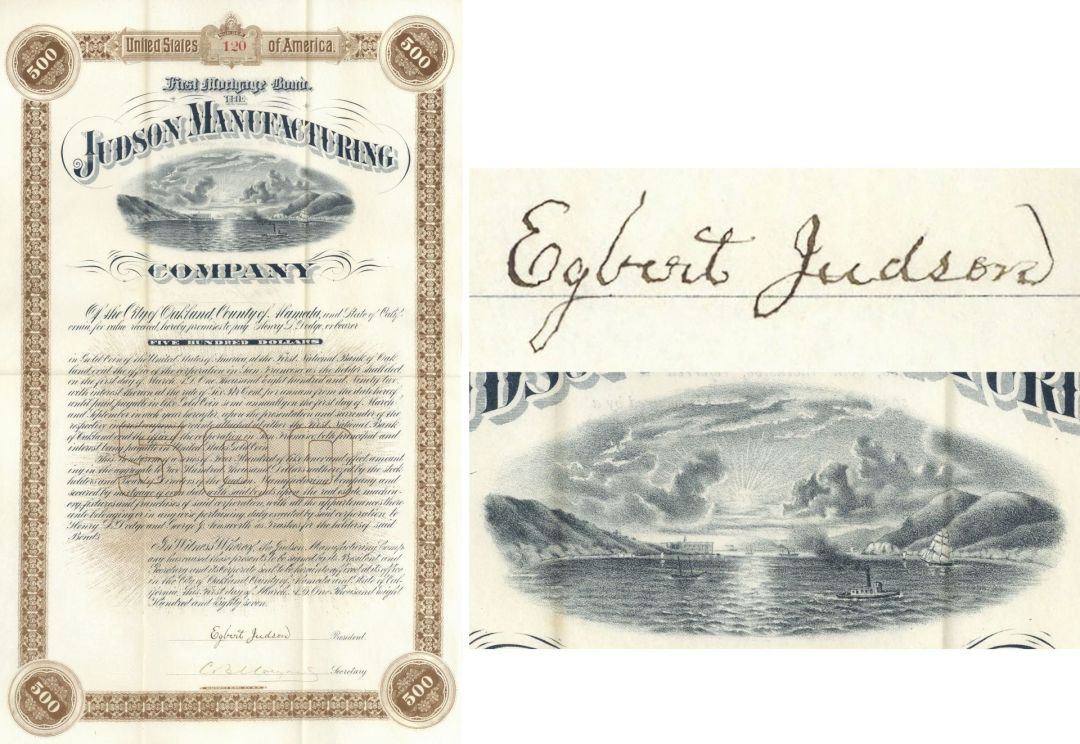 United States 120 of America.
500
500
First Mortgage Bond.
THE
JUDSON MANUFACTURING
COMPANY
Of the City of Oakland, County of Alameda, and State of Calif-
ornia, for value received, hereby promises to pay Henry L. Dodge, or bearer
FIVE HUNDRED DOLLARS
in Gold Coin of the United States of America, at the First National Bank of Oak
land, or at the office of the corporation in San Francisco, as the holder shall elect
on the first day of March A.D. One Thousand eight hundred and Ninety
with interest thereon at the rate of Six Per Cent. per annum from the date hereof,
until paid, payable in like Gold Coin semi-annually on the first day of March
and September in each year hereafter, upon the presentation and surrender of the
respective coupons hereunto attached at either the First National Bank
of Oakland or at the office of the corporation in San Francisco, both principal and
interest being payable in United States Gold Coin.
This Bond is one of a series of Four Hundred of like tenor and effect, amount
ing in the aggregate to Two Hundred Thousand Dollars authorized by the stock
holders and Board of Directors of the Judson Manufacturing Company and
secured by mortgage of even date with said bonds upon the real estate, machin-
ery, fixtures and franchises of said corporation, with all the appurtenances there
unto belonging or in anywise pertaining, duly executed by said corporation to
Henry L. Dodge and George J. as Trustees for the holders of said
Bonds.
In Witness Whereof, the Judson Manufacturing Comp
any has caused these presents to be signed by its President and
Secretary and its corporate seal to be hereunto affixed at its office
in the City of Oakland, County of Alameda and State of Cal-
ifornia, this First day of March, A.D. One Thousand eight
Hundred and Eighty seven.
Egbert Judson President
Secretary
500
500
Egbert Judson